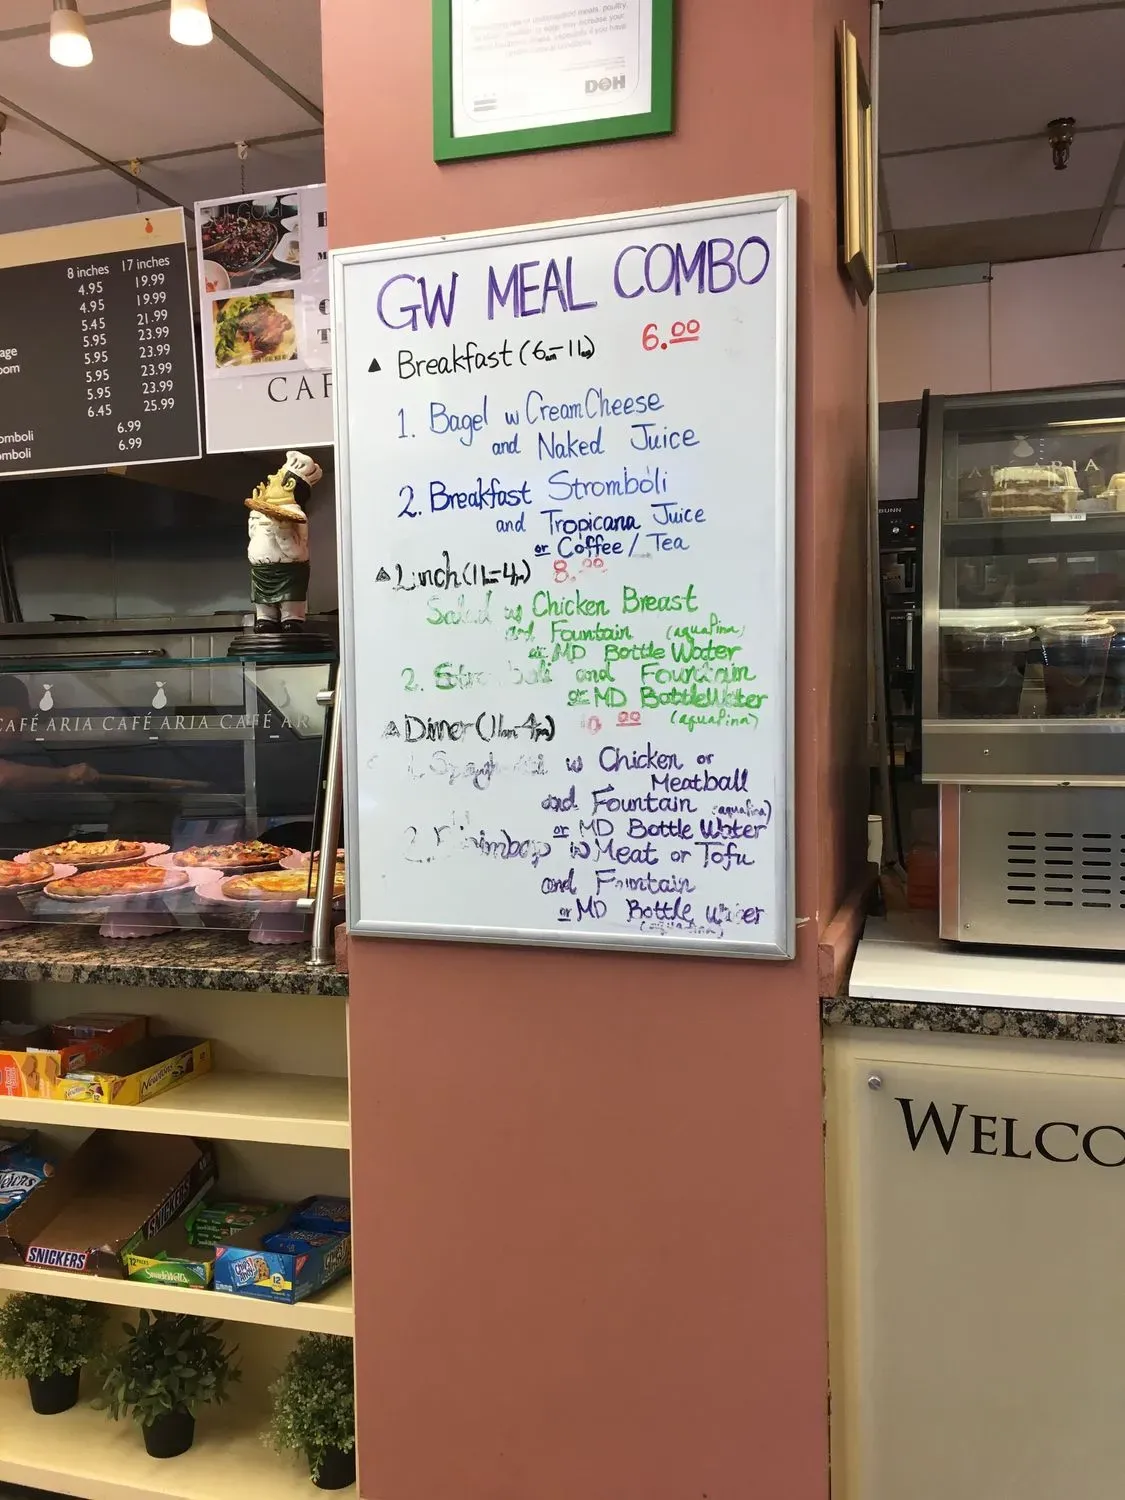 DOH
8 inches 17 inches
4.95 19.99
4.95 19.99
5.45 21.99
5.95 23.99
5.95 23.99
5.95 23.99
5.95 23.99
6.45 25.99
6.99
omboli 6.99
CAF
GW MEAL COMBO
▲ Breakfast (6am-11am) 6.00
1. Bagel w Cream Cheese
and Naked Juice
2. Breakfast Stromboli
and Tropicana Juice
or Coffee / Tea
▲ Lunch (11am-4pm) 8.00
Salad w Chicken Breast
and Fountain (aquafina)
or MD Bottle Water
2. Stromboli and Fountain
or MD Bottle Water
(aquafina)
▲ Dinner (11am-4pm) 10.00
1. Spaghetti w Chicken or
Meatball
and Fountain (aquafina)
or MD Bottle Water
2. Bibimbap w Meat or Tofu
and Fountain
or MD Bottle Water
(aquafina)
CAFÉ ARIA CAFÉ ARIA CAFÉ AR
CAFE ARIA
BUNN
Newtons
SNICKERS
SNICKERS
SnackWell's
Chips Ahoy!
12
WELCO